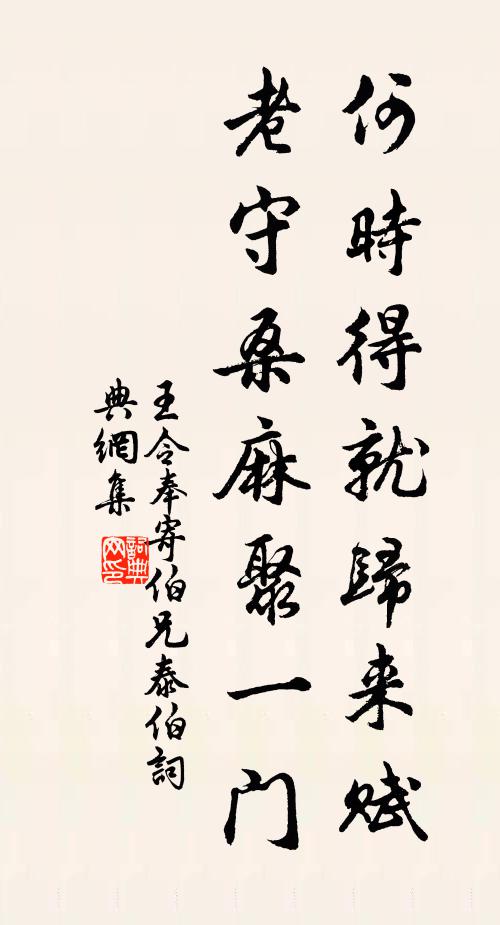 何時得就歸来賦
老守桑麻聚一門
王令奉寄伯兄泰伯詞
典網集
詞典
网印